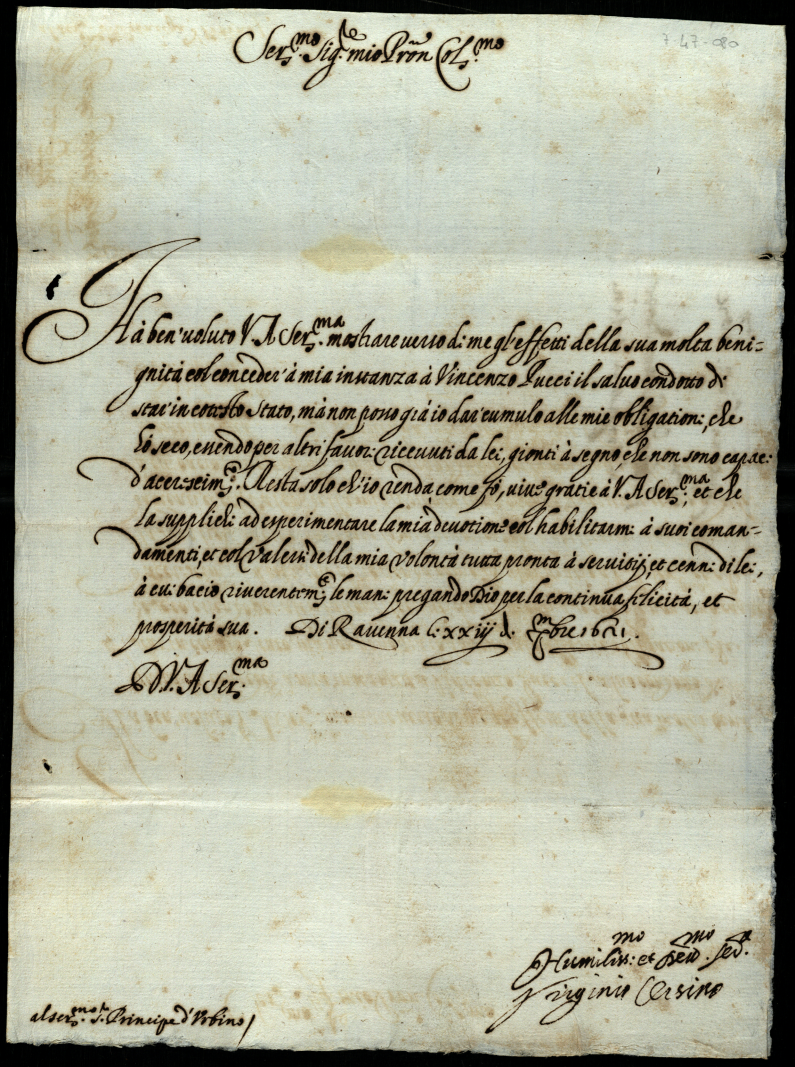 7-47-080
Ser.mo Sig.re mio Pròn Col.mo
Hà ben' voluto V. A. Ser.ma mostrare verso di me gl'effetti della sua molta beni-
gnità col conceder' à mia instanza à Vincenzo Pucci il salvo condotto di
star' in cotesto stato, mà non posso già io dar' cumulo alle mie obligationi, che
hò seco, essendo per altri favori ricevuti da lei, gionti à segno, che non sono capaci
d'acerescim.o Resta solo ch'io renda, come fò, vive gratie à V. A. Ser.ma, et che
la supplichi ad esperimentare la mia devotione col habilitarmi à suoi coman-
damenti, et col valersi della mia volontà tutta pronta à servitij, et cenni di lei,
à cui bacio riverentem.te le mani pregando Dio per la continua felicità, et
prosperità sua. Di Ravenna li xxiij di bre 1621.
D. V. A. Ser.ma
Humiliss.mo et mo ser.
Virginio
al ser.mo s.r Principe d'Urbino/